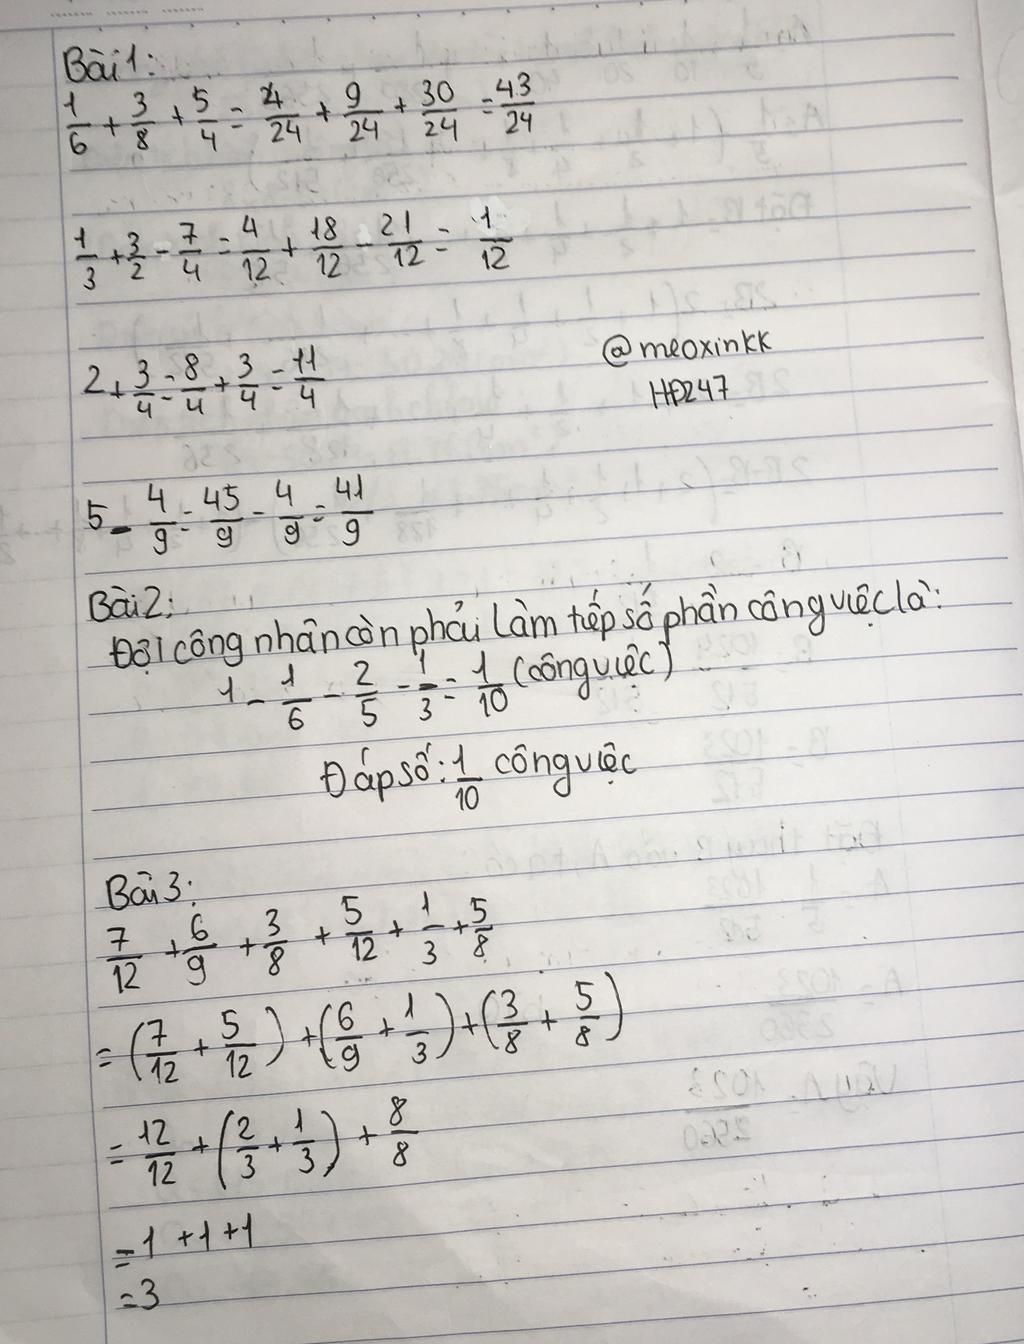 Bài 1:
1/6 + 3/8 + 5/4 = 4/24 + 9/24 + 30/24 = 43/24
1/3 + 3/2 - 7/4 = 4/12 + 18/12 - 21/12 = 1/12
2 + 3/4 = 8/4 + 3/4 = 11/4
@meoxinkk
HP247
5 - 4/9 = 45/9 - 4/9 = 41/9
Bài 2:
Đội công nhân còn phải làm tiếp số phần công việc là:
1 - 1/6 - 2/5 - 1/3 = 1/10 (công việc)
Đáp số: 1/10 công việc
Bài 3:
7/12 + 6/9 + 3/8 + 5/12 + 1/3 + 5/8
= (7/12 + 5/12) + (6/9 + 1/3) + (3/8 + 5/8)
= 12/12 + (2/3 + 1/3) + 8/8
= 1 + 1 + 1
= 3